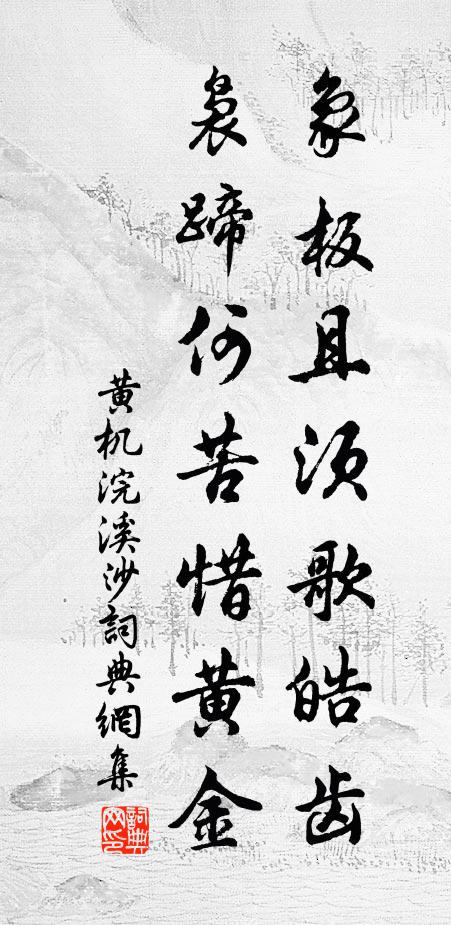 象板且须歌皓齿
袅蹄何苦惜黄金
黄机浣溪沙詞典網集
詞典网印